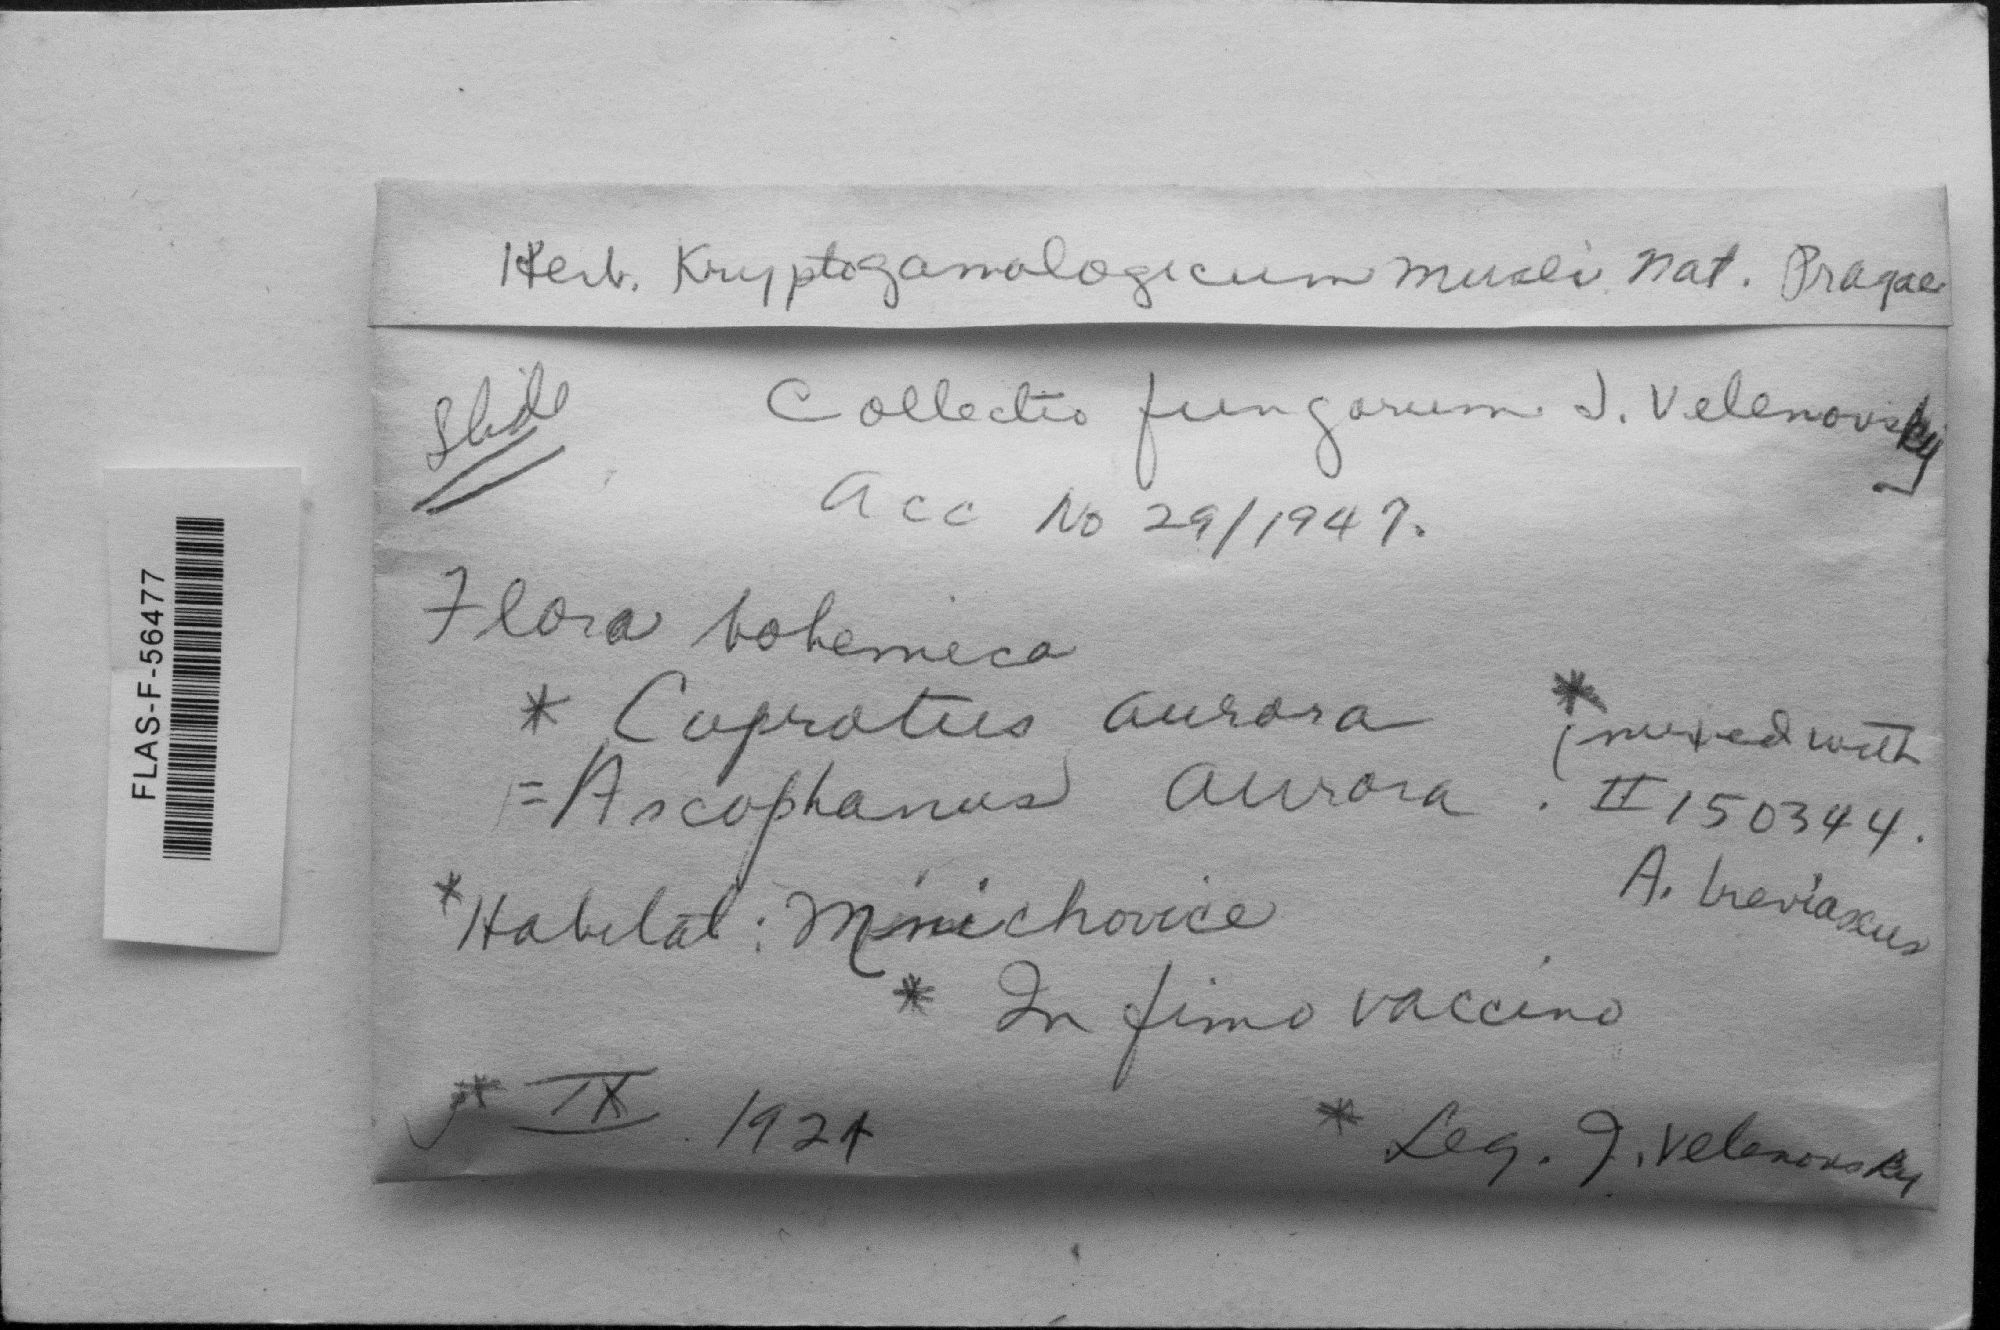 Herb. Kryptogamologicum musei nat. Pragae
Slide
Collectio fungorum J. Velenovsky
Acc No 29/1947.
Flora bohemica
* Coprotus aurora
= Ascophanus aurora.
* (mixed with
II 150344.
A. breviascus
* Habitat: Mnichovice
* In fimo vaccino
* IX 1924
* Leg. J. Velenovsky
FLAS-F-56477